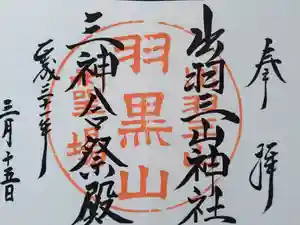 奉拝
出羽三山神社
三神合祭殿
平成三十一年
三月十五日
羽黒山